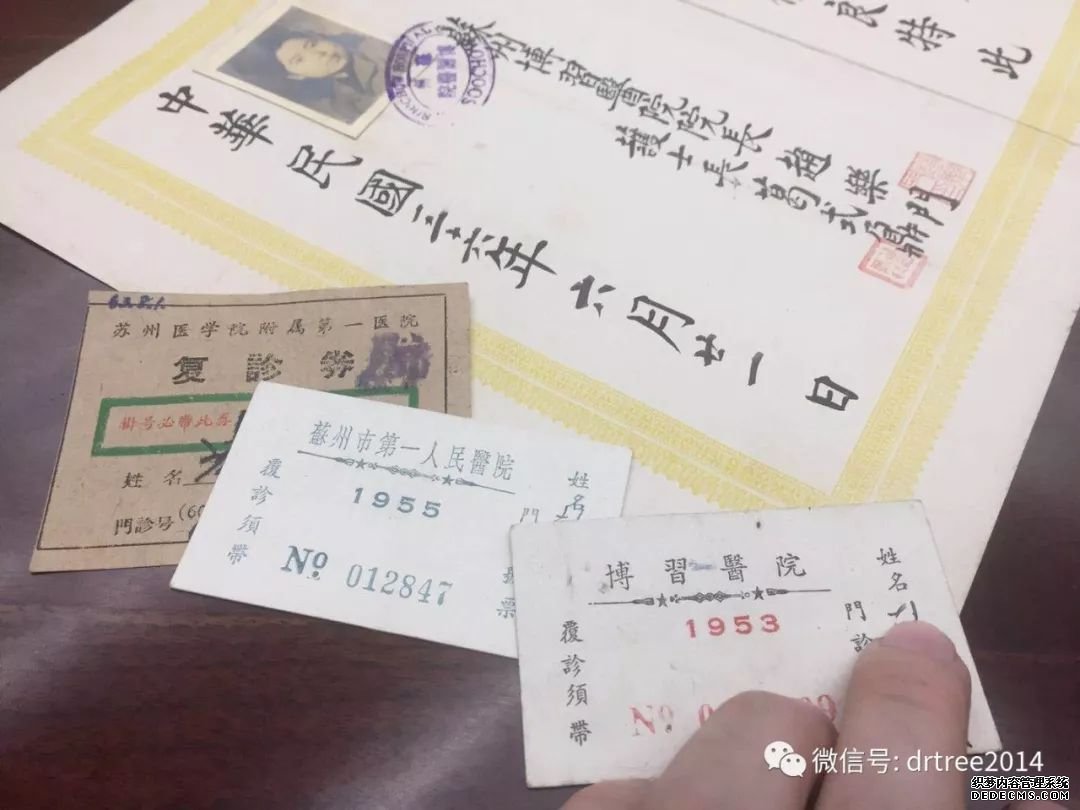 良特
此
蘇州博習醫院院長趙樂門
護士長葛式頎聯
中華民國三十六年六月廿一日
苏州医学院附属第一医院
复診券
掛号必联此券
姓名
門診号(60
蘇州市第一人民醫院
1955
覆診須帶
姓名
門
票
Nº 012847
博習醫院
1953
覆診須帶
姓名
門診
Nº 0
微信号: drtree2014
织梦内容管理系统
DEDECMS.COM